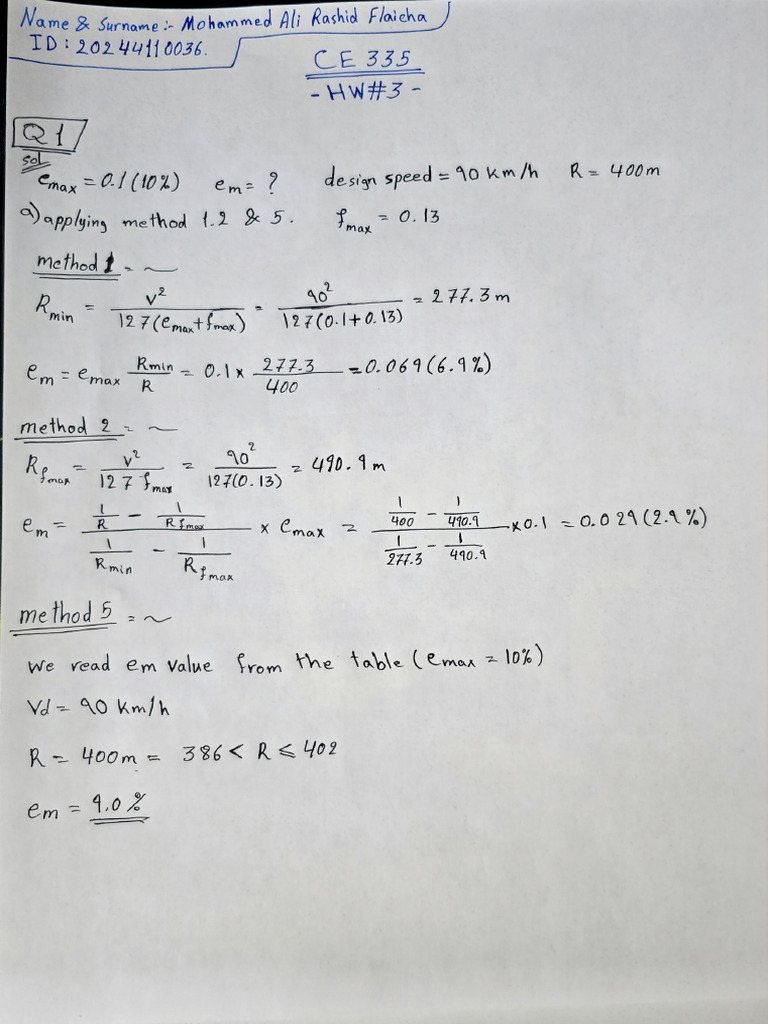 Name & Surname :- Mohammed Ali Rashid Flaicha
ID : 20244110036.
CE 335
- HW#3 -
Q1
sol
emax = 0.1 (10%) em = ? design speed = 90 km/h R = 400m
a) applying method 1.2 & 5. fmax = 0.13
method 1 = ~
Rmin = V² / 127(emax+fmax) = 90² / 127(0.1+0.13) = 277.3 m
em = emax Rmin / R = 0.1 x 277.3 / 400 = 0.069 (6.9%)
method 2 = ~
Rfmax = V² / 127 fmax = 90² / 127(0.13) = 490.9 m
em = (1/R - 1/Rfmax) / (1/Rmin - 1/Rfmax) x emax = (1/400 - 1/490.9) / (1/277.3 - 1/490.9) x 0.1 = 0.029 (2.9%)
method 5 = ~
we read em value from the table (emax = 10%)
Vd = 90 Km/h
R = 400m = 386 < R ⩽ 402
em = 9.0 %